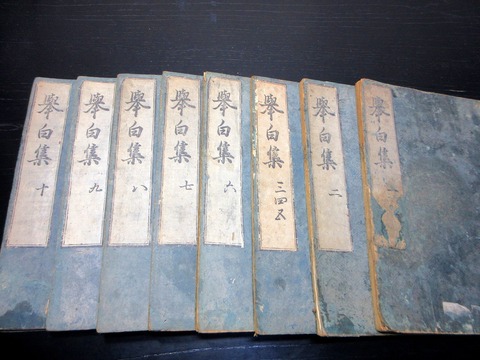 舉白集 一
舉白集 二
舉白集 三四五
舉白集 六
舉白集 七
舉白集 八
舉白集 九
舉白集 十